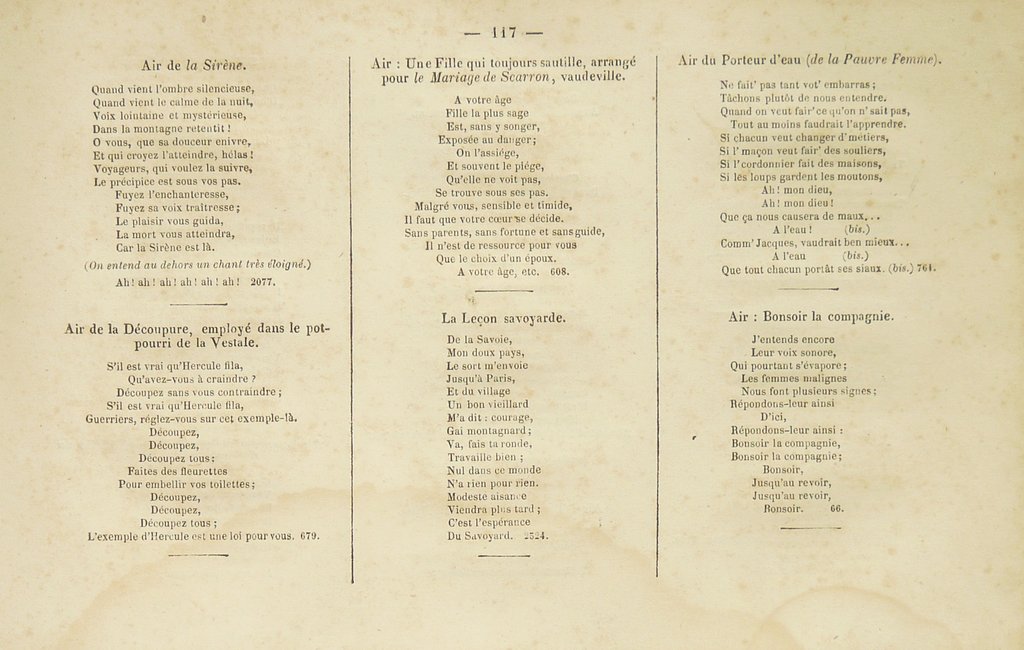 — 117 —
Air de la Sirène.
Quand vient l'ombre silencieuse,
Quand vient le calme de la nuit,
Voix lointaine et mystérieuse,
Dans la montagne retentit !
O vous, que sa douceur enivre,
Et qui croyez l'atteindre, hélas !
Voyageurs, qui voulez la suivre,
Le précipice est sous vos pas.
Fuyez l'enchanteresse,
Fuyez sa voix traîtresse ;
Le plaisir vous guida,
La mort vous atteindra,
Car la Sirène est là.
(On entend au dehors un chant très éloigné.)
Ah ! ah ! ah ! ah ! ah ! ah ! 2077.
Air de la Découpure, employé dans le pot-
pourri de la Vestale.
S'il est vrai qu'Hercule fila,
Qu'avez-vous à craindre ?
Découpez sans vous contraindre ;
S'il est vrai qu'Hercule fila,
Guerriers, réglez-vous sur cet exemple-là.
Découpez,
Découpez,
Découpez tous :
Faites des fleurettes
Pour embellir vos toilettes ;
Découpez,
Découpez,
Découpez tous ;
L'exemple d'Hercule est une loi pour vous. 679.
Air : Une Fille qui toujours sautille, arrangé
pour le Mariage de Scarron, vaudeville.
A votre âge
Fille la plus sage
Est, sans y songer,
Exposée au danger ;
On l'assiége,
Et souvent le piége,
Qu'elle ne voit pas,
Se trouve sous ses pas.
Malgré vous, sensible et timide,
Il faut que votre cœur se décide.
Sans parents, sans fortune et sans guide,
Il n'est de ressource pour vous
Que le choix d'un époux.
A votre âge, etc. 608.
La Leçon savoyarde.
De la Savoie,
Mon doux pays,
Le sort m'envoie
Jusqu'à Paris,
Et du village
Un bon vieillard
M'a dit : courage,
Gai montagnard ;
Va, fais ta ronde,
Travaille bien ;
Nul dans ce monde
N'a rien pour rien.
Modeste aisance
Viendra plus tard ;
C'est l'espérance
Du Savoyard. 2524.
Air du Porteur d'eau (de la Pauvre Femme).
Ne fait' pas tant vot' embarras ;
Tâchons plutôt de nous entendre.
Quand on veut fair' ce qu'on n' sait pas,
Tout au moins faudrait l'apprendre.
Si chacun veut changer d'métiers,
Si l' maçon veut fair' des souliers,
Si l'cordonnier fait des maisons,
Si les loups gardent les moutons,
Ah ! mon dieu,
Ah ! mon dieu !
Que ça nous causera de maux...
A l'eau ! (bis.)
Comm' Jacques, vaudrait ben mieux...
A l'eau (bis.)
Que tout chacun portât ses siaux. (bis.) 761.
Air : Bonsoir la compagnie.
J'entends encore
Leur voix sonore,
Qui pourtant s'évapore ;
Les femmes malignes
Nous font plusieurs signes ;
Répondons-leur ainsi
D'ici,
Répondons-leur ainsi :
Bonsoir la compagnie,
Bonsoir la compagnie ;
Bonsoir,
Jusqu'au revoir,
Jusqu'au revoir,
Bonsoir. 66.